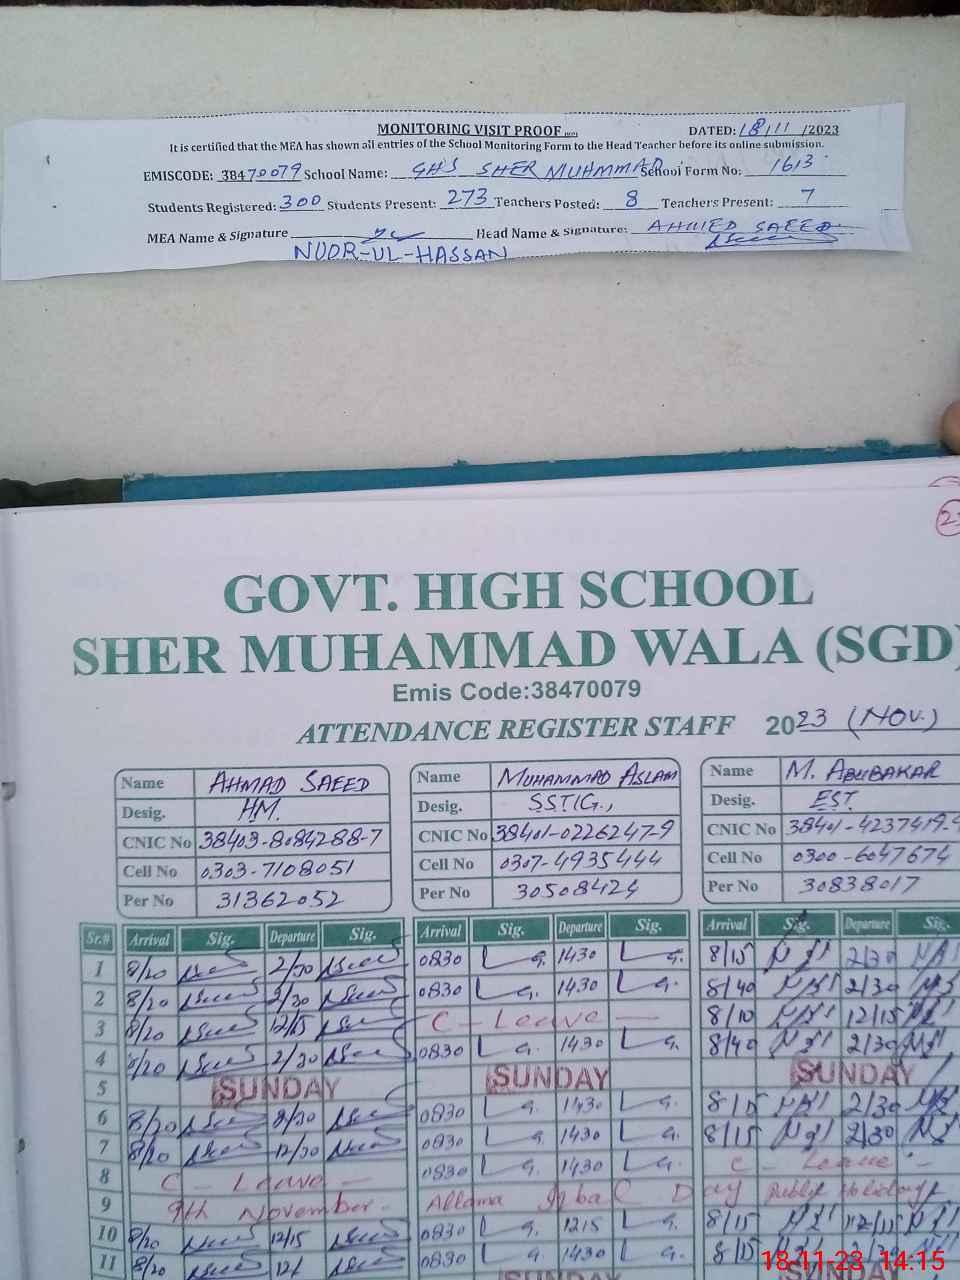 MONITORING VISIT PROOF DATED: 18/11/2023
It is certified that the MEA has shown all entries of the School Monitoring Form to the Head Teacher before its online submission.
EMISCODE: 38470079 School Name: GHS SHER MUHMMAD School Form No: 1613
Students Registered: 300 Students Present: 273 Teachers Posted: 8 Teachers Present: 7
MEA Name & Signature Head Name & Signature: AHMED SAEED
NUOR-UL-HASSAN
GOVT. HIGH SCHOOL
SHER MUHAMMAD WALA (SGD)
Emis Code:38470079
ATTENDANCE REGISTER STAFF 2023 (NOV.)
Name AHMAD SAEED Name MUHAMMAD ASLAM Name M. ABUBAKAR
Desig. HM. Desig. SSTIG., Desig. EST
CNIC No 38403-8084288-7 CNIC No 38401-0226247-9 CNIC No 38401-4237419-9
Cell No 0303-7108051 Cell No 0307-4935444 Cell No 0300-6047674
Per No 31362052 Per No 30508424 Per No 30838017
Sr.# Arrival Sig. Departure Sig. Arrival Sig. Departure Sig. Arrival Sig. Departure Sig.
1 8/20 2/30 0830 1430 8/15 2/30
2 8/20 2/30 0830 1430 8/40 2/30
3 8/20 12/15 C - Leave - 8/10 12/15
4 8/20 2/30 0830 1430 8/40 2/30
5 SUNDAY SUNDAY SUNDAY
6 8/20 2/30 0830 1430 8/15 2/30
7 8/20 12/30 0830 1430 8/15 2/30
8 C - Leave - 0830 1430 C - Leave -
9 9th November. Allama Iqbal Day Public Holiday
10 8/20 12/15 0830 1215 8/15 12/15
11 8/20 0830 1430 8/15
SUNDAY SUNDAY
18-11-23 14:15